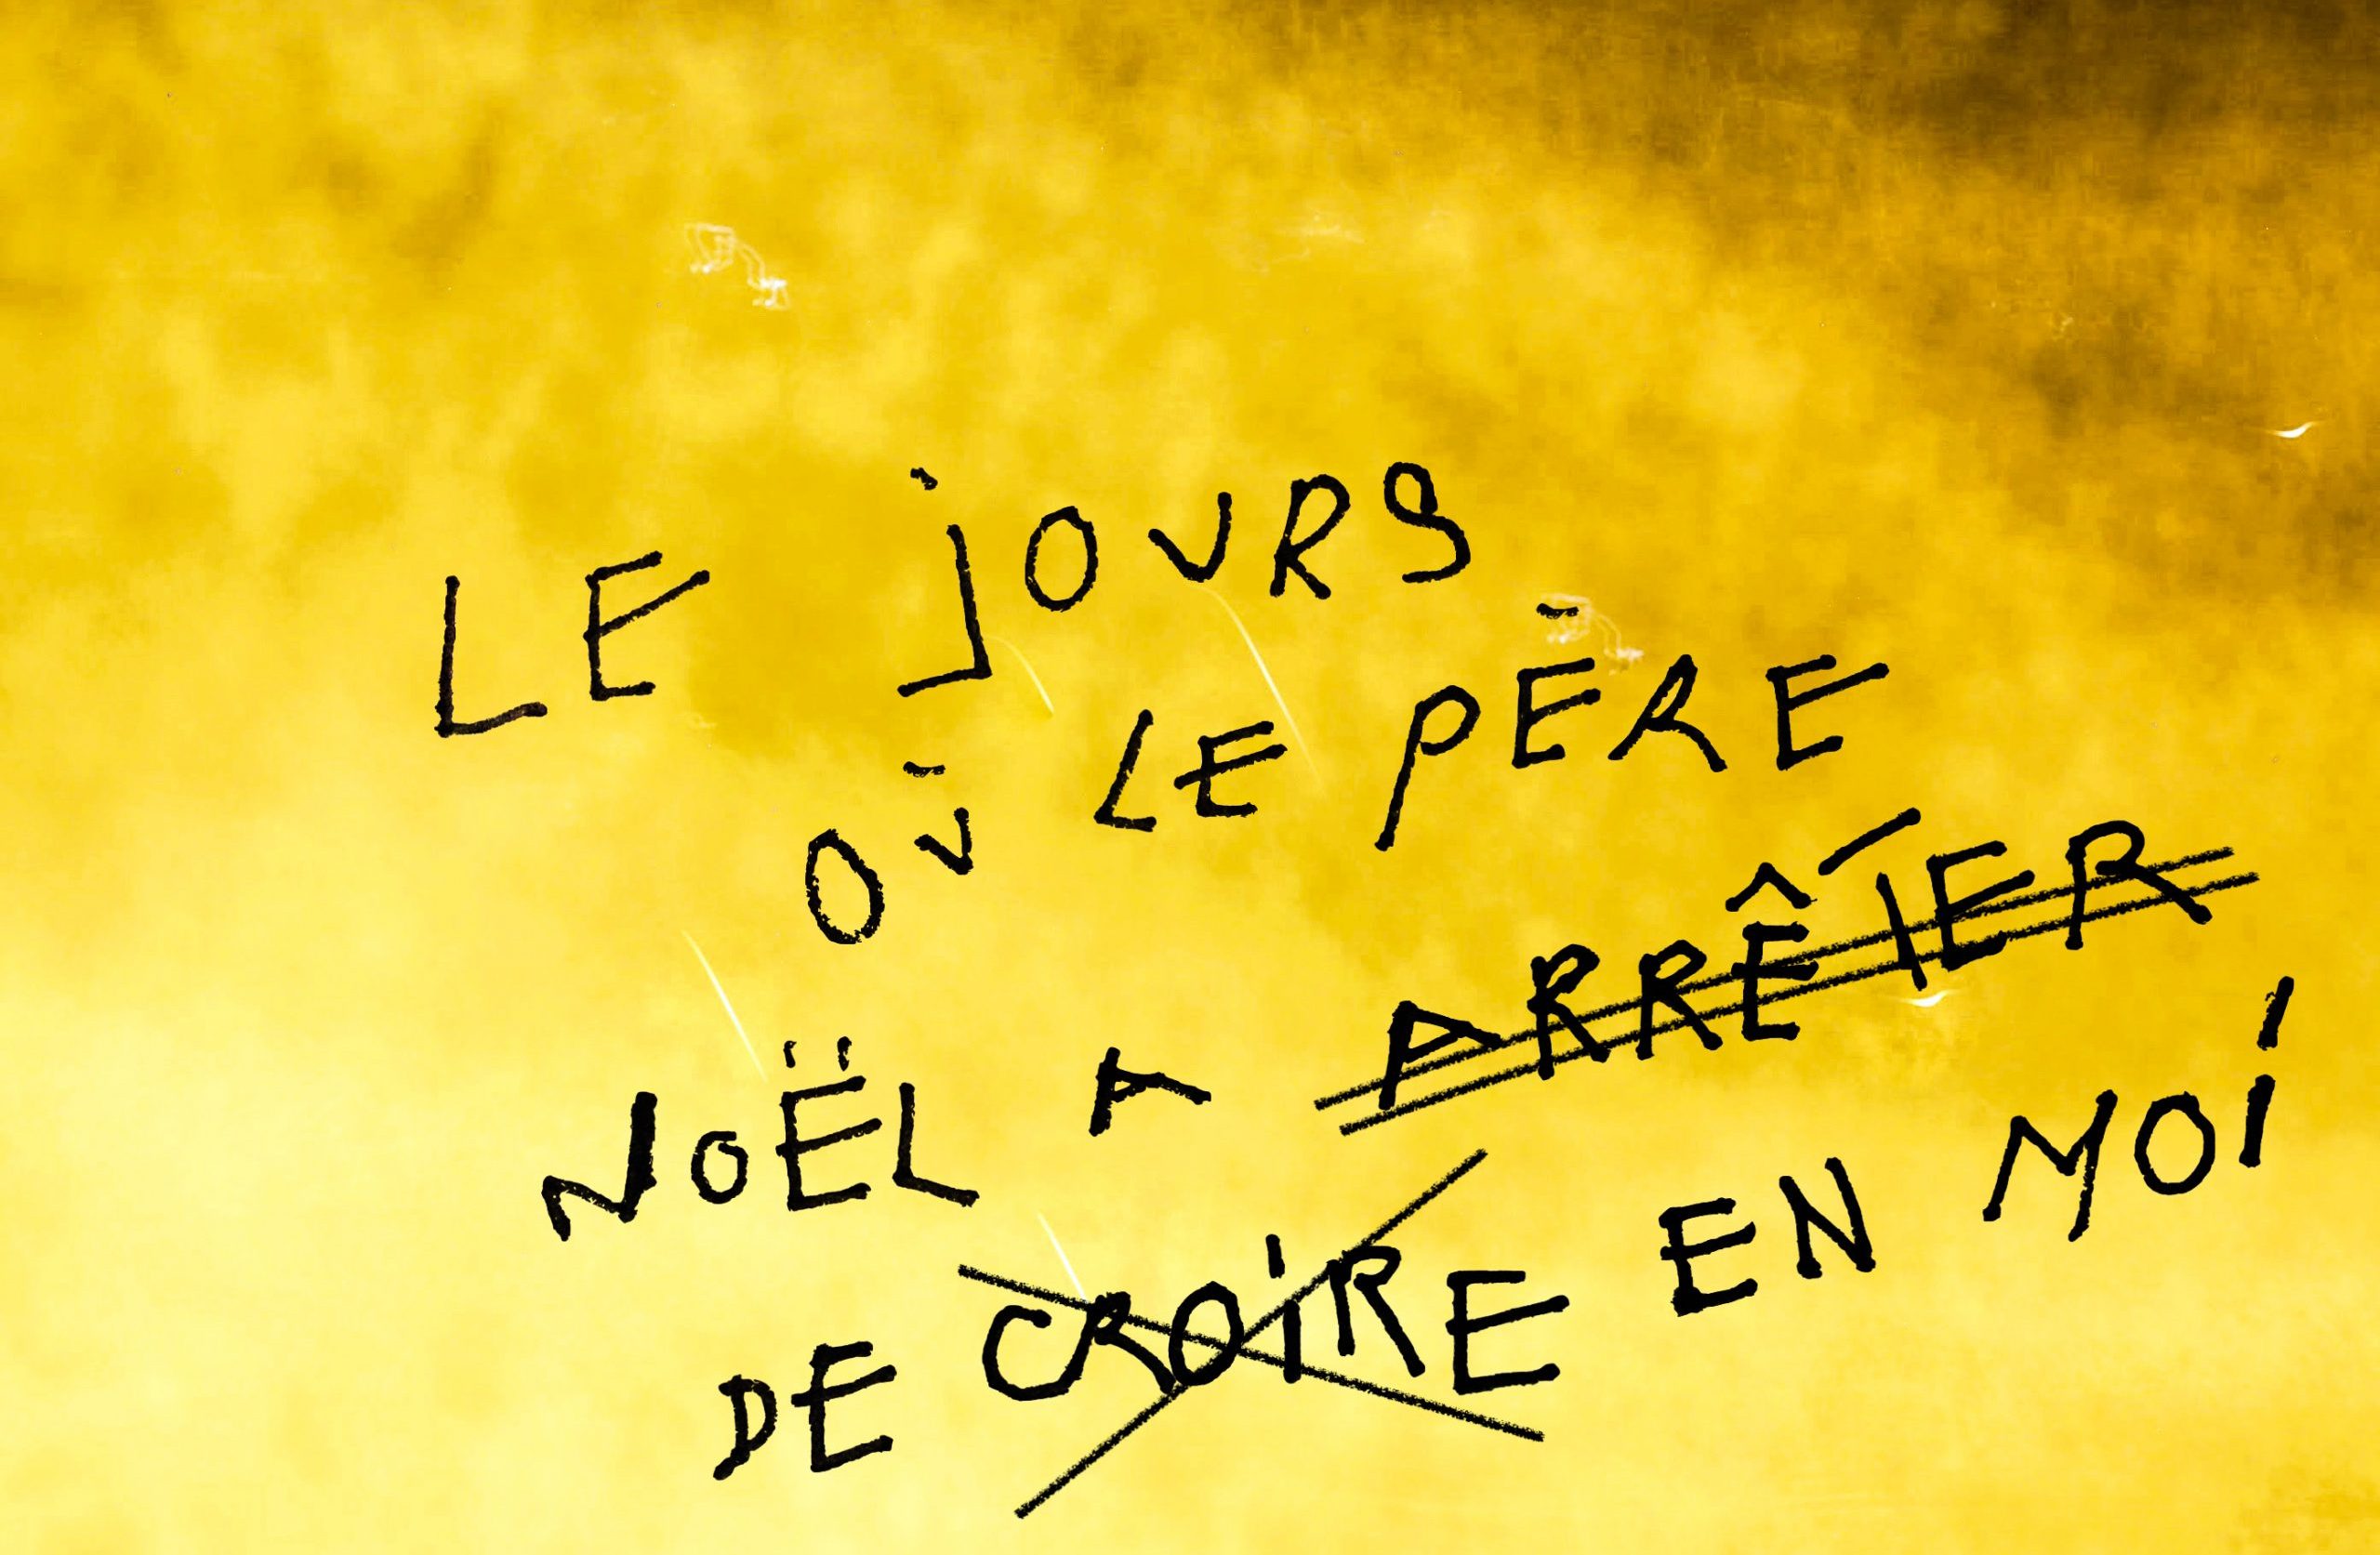 LE JOURS
OÙ LE PÈRE
NOËL A ARRÊTER
DE CROIRE EN MOI